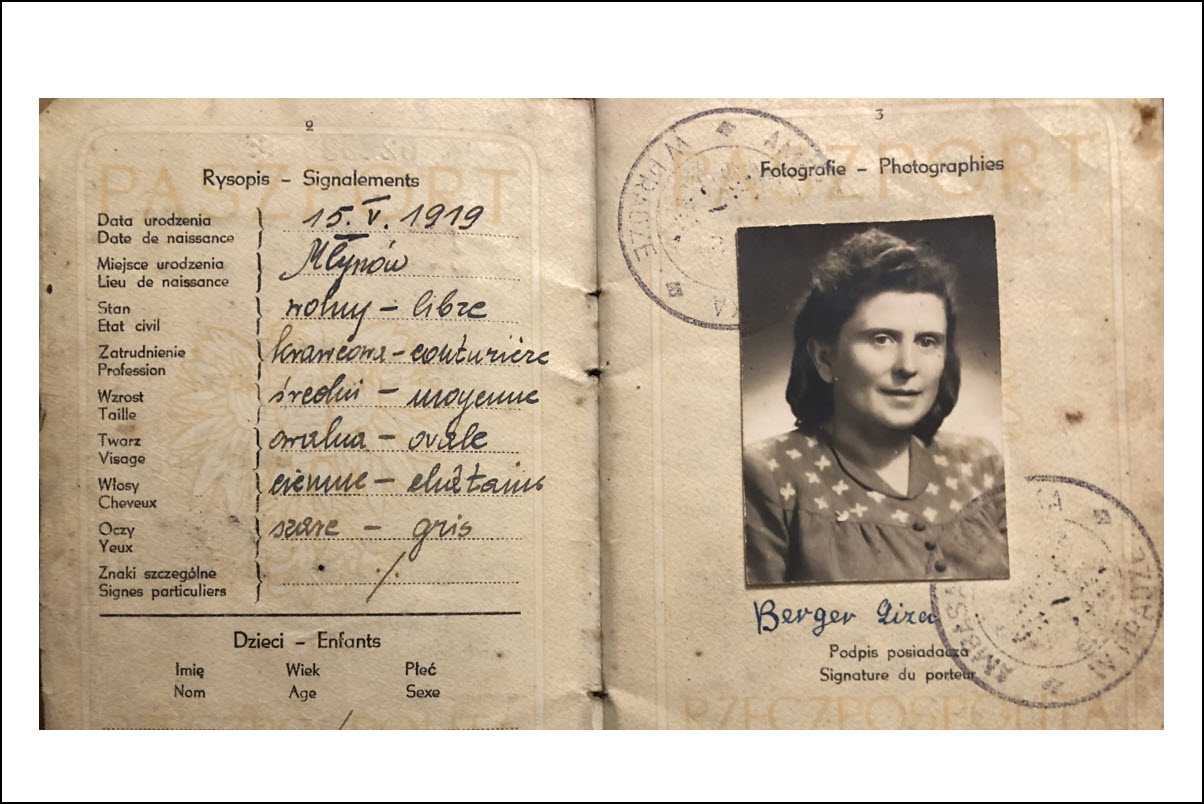 2
PASZPORT
Rysopis – Signalements
Data urodzenia
Date de naissance
15. V. 1919
Miejsce urodzenia
Lieu de naissance
Młynów
Stan
Etat civil
wolny – libre
Zatrudnienie
Profession
krawcowa – couturière
Wzrost
Taille
średni – moyenne
Twarz
Visage
owalna – ovale
Włosy
Cheveux
ciemne – châtains
Oczy
Yeux
szare – gris
Znaki szczególne
Signes particuliers
Dzieci – Enfants
Imię Wiek Płeć
Nom Age Sexe
3
PASZPORT
Fotografie – Photographies
W PRADZE
Berger Giza
Podpis posiadacza
Signature du porteur
W PRADZE
RZECZPOSPOLITA